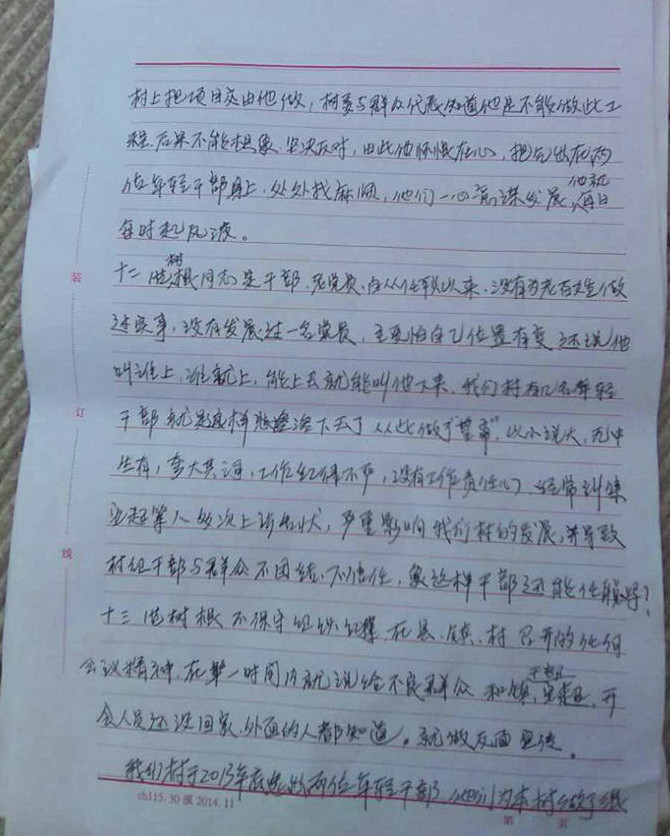 村上把项目交由他做，村委与群众代表知道他是不能做此工
程，后果不能想象，坚决反对，由此他怀恨在心，把气出在两
位年轻干部身上，处处找麻烦，他们一心谋发展，他就每日
每时起风波。
十二 范树根同志是干部、老党员，自从任职以来，没有为老百姓做
过实事，没有发展过一名党员，主要怕自己位置有变，还说他
叫谁上，谁就上，能上去就能叫他下来，我们村有几名年轻
干部就是这样 下去了 从此做了 ，以小说大，无中
生有，夸大其词，工作纪律不严，没有工作责任心，经常纠集
等人多次上访告状，严重影响我们村的发展，并导致
村组干部与群众不团结，不信任，象这样干部还能任职吗？
十三 范树根不保守组织纪律，在县、镇、村召开的任何
会议精神，在第一时间内就说给不良群众 和 ，开
会人员还没回家，外面的人都知道。就做反面宣传。
我们村于2013年底选出两位年轻干部，他们为本村做了
装
订
线
ch115.30 2014.11
第 页